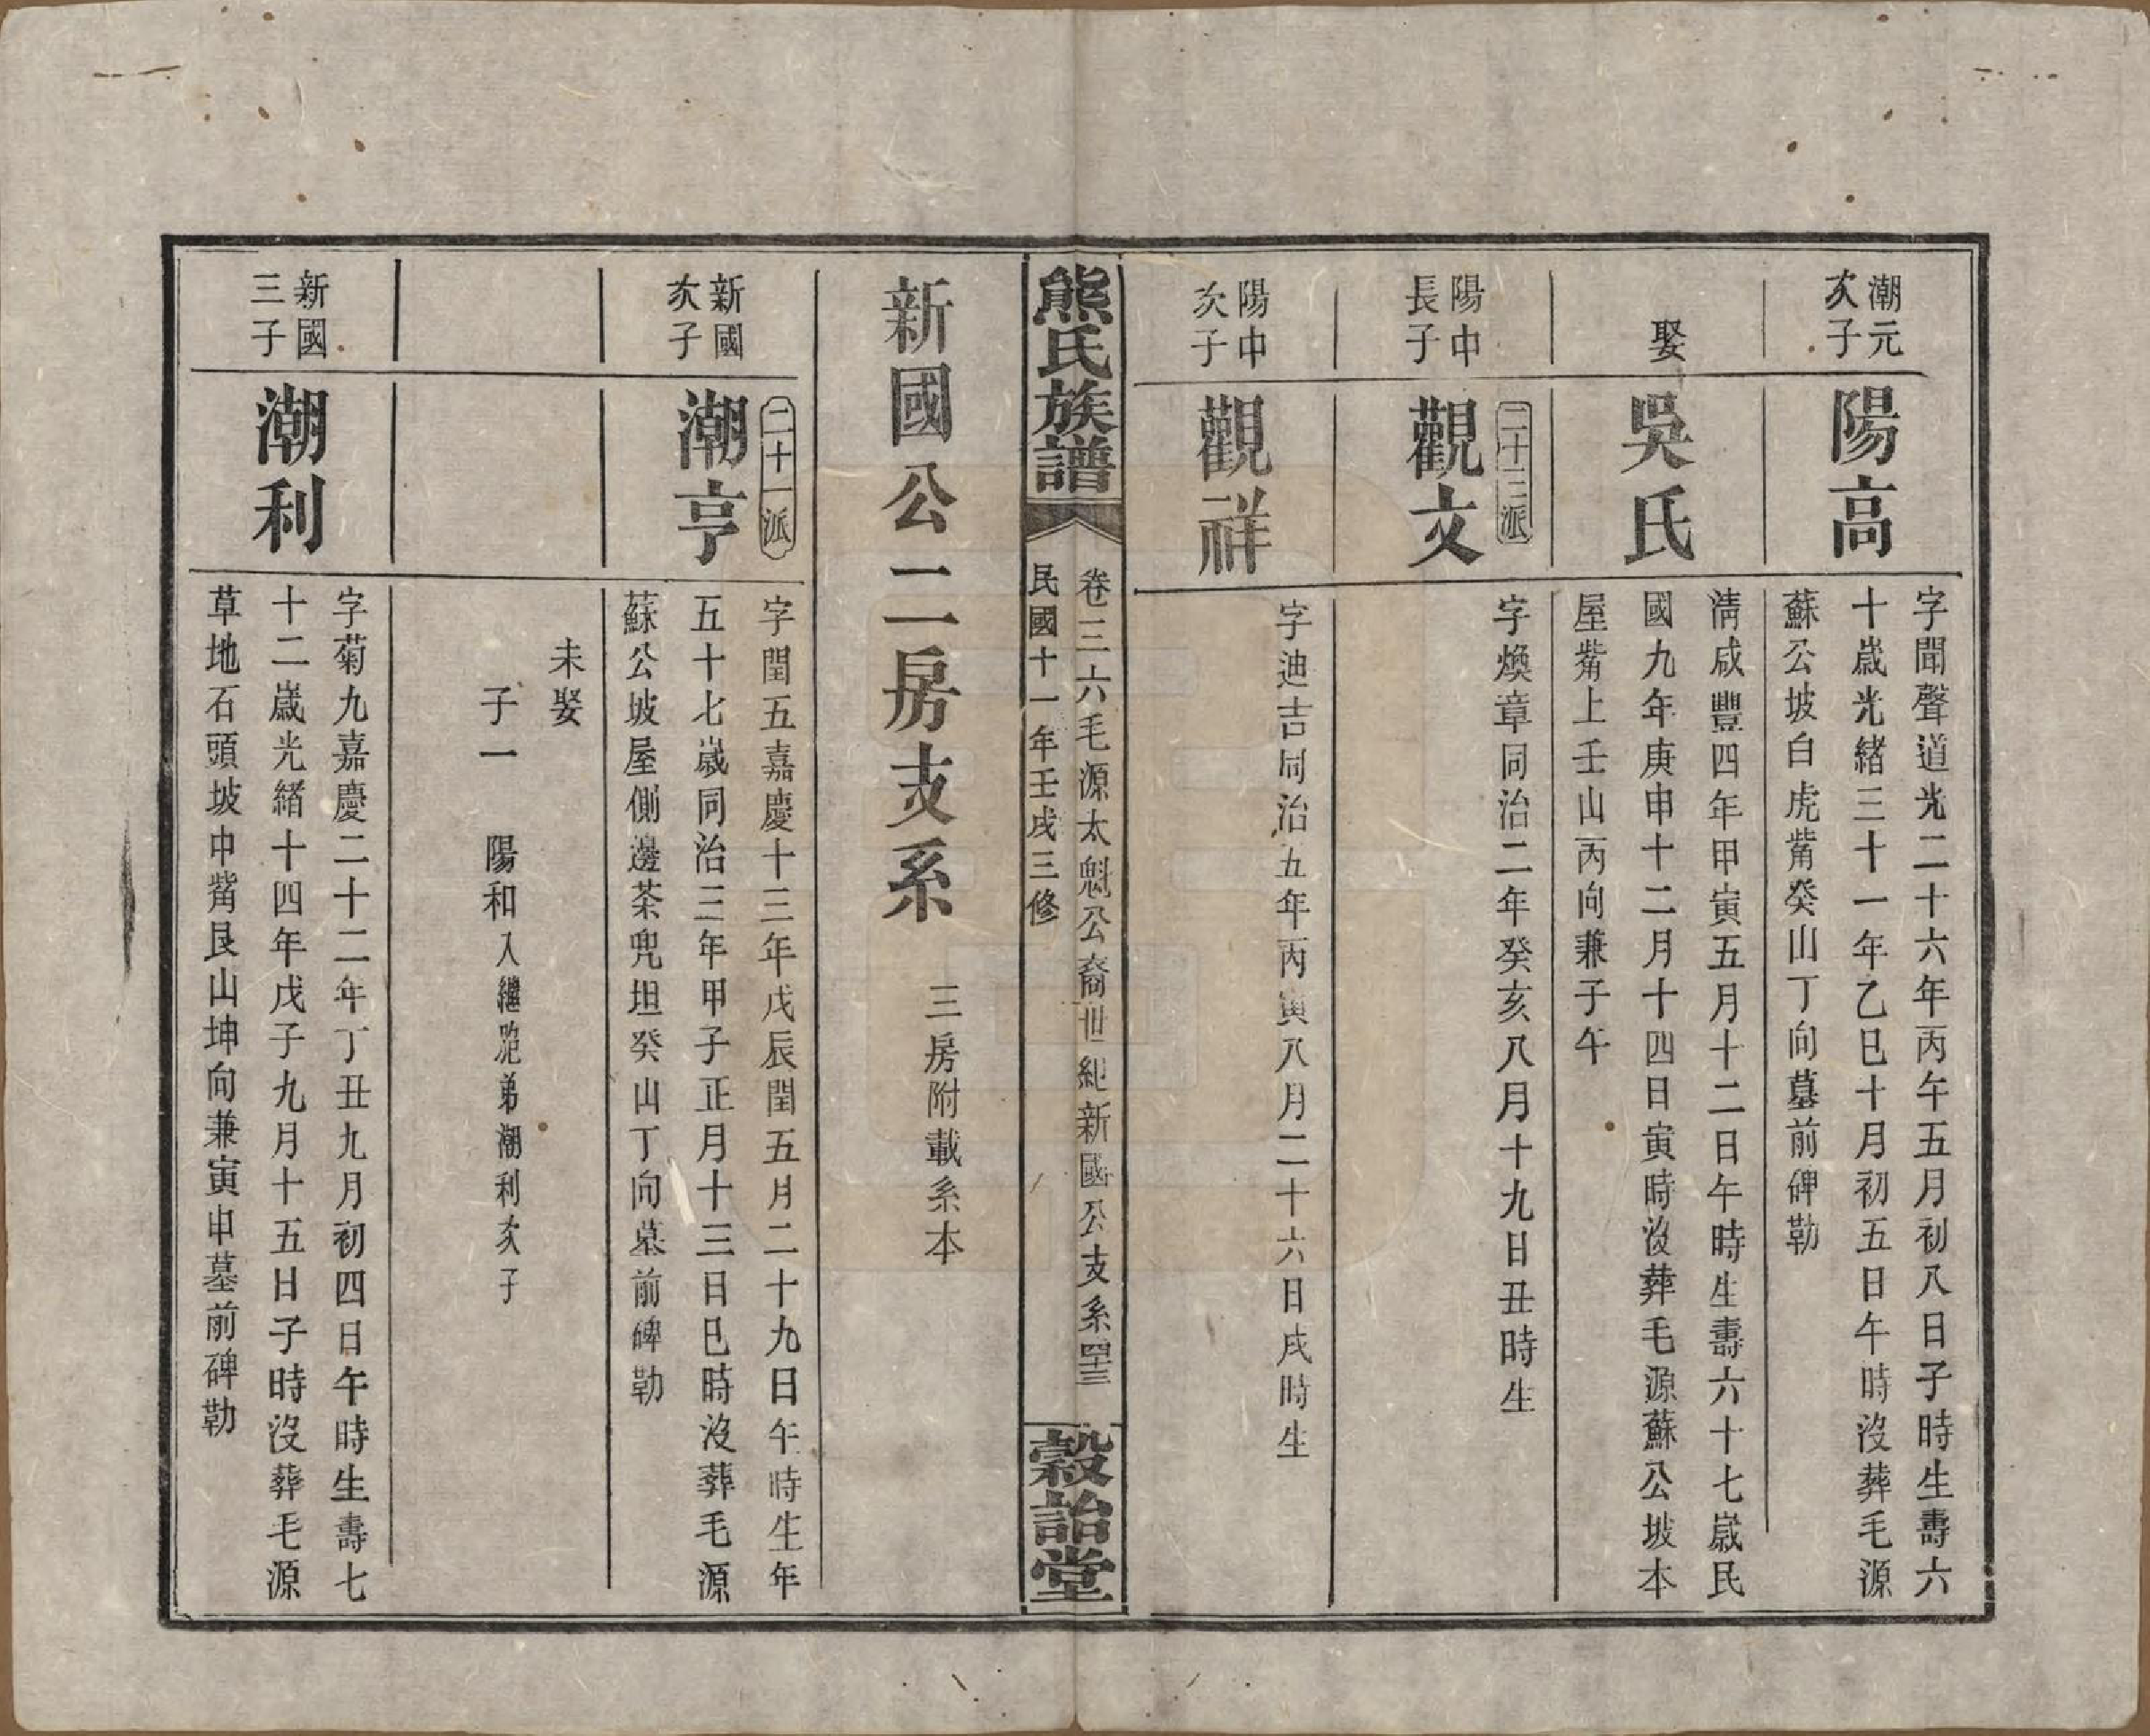 潮元
次子
陽高
字聞聲道光二十六年丙午五月初八日子時生壽六
十歲光緒三十一年乙巳十月初五日午時沒葬毛源
蘇公坡白虎觜癸山丁向墓前碑勒
娶
吳氏
清咸豐四年甲寅五月十二日午時生壽六十七歲民
國九年庚申十二月十四日寅時沒葬毛源蘇公坡本
屋觜上壬山丙向兼子午
陽中
長子
二十三派
觀文
字煥章同治二年癸亥八月十九日丑時生
陽中
次子
觀祥
字迪吉同治五年丙寅八月二十六日戌時生
熊氏族譜
卷三六毛源太魁公裔世紀新國公支系四三
民國十一年壬戌三修
穀詒堂
新國公二房支系
三房附載系本
新國
次子
二十一派
潮亨
字閏五嘉慶十三年戊辰閏五月二十九日午時生年
五十七歲同治三年甲子正月十三日巳時沒葬毛源
蘇公坡屋側邊茶兜坦癸山丁向墓前碑勒
未娶
子一 陽和入繼胞弟潮利次子
新國
三子
潮利
字菊九嘉慶二十二年丁丑九月初四日午時生壽七
十二歲光緒十四年戊子九月十五日子時沒葬毛源
草地石頭坡中觜艮山坤向兼寅申墓前碑勒